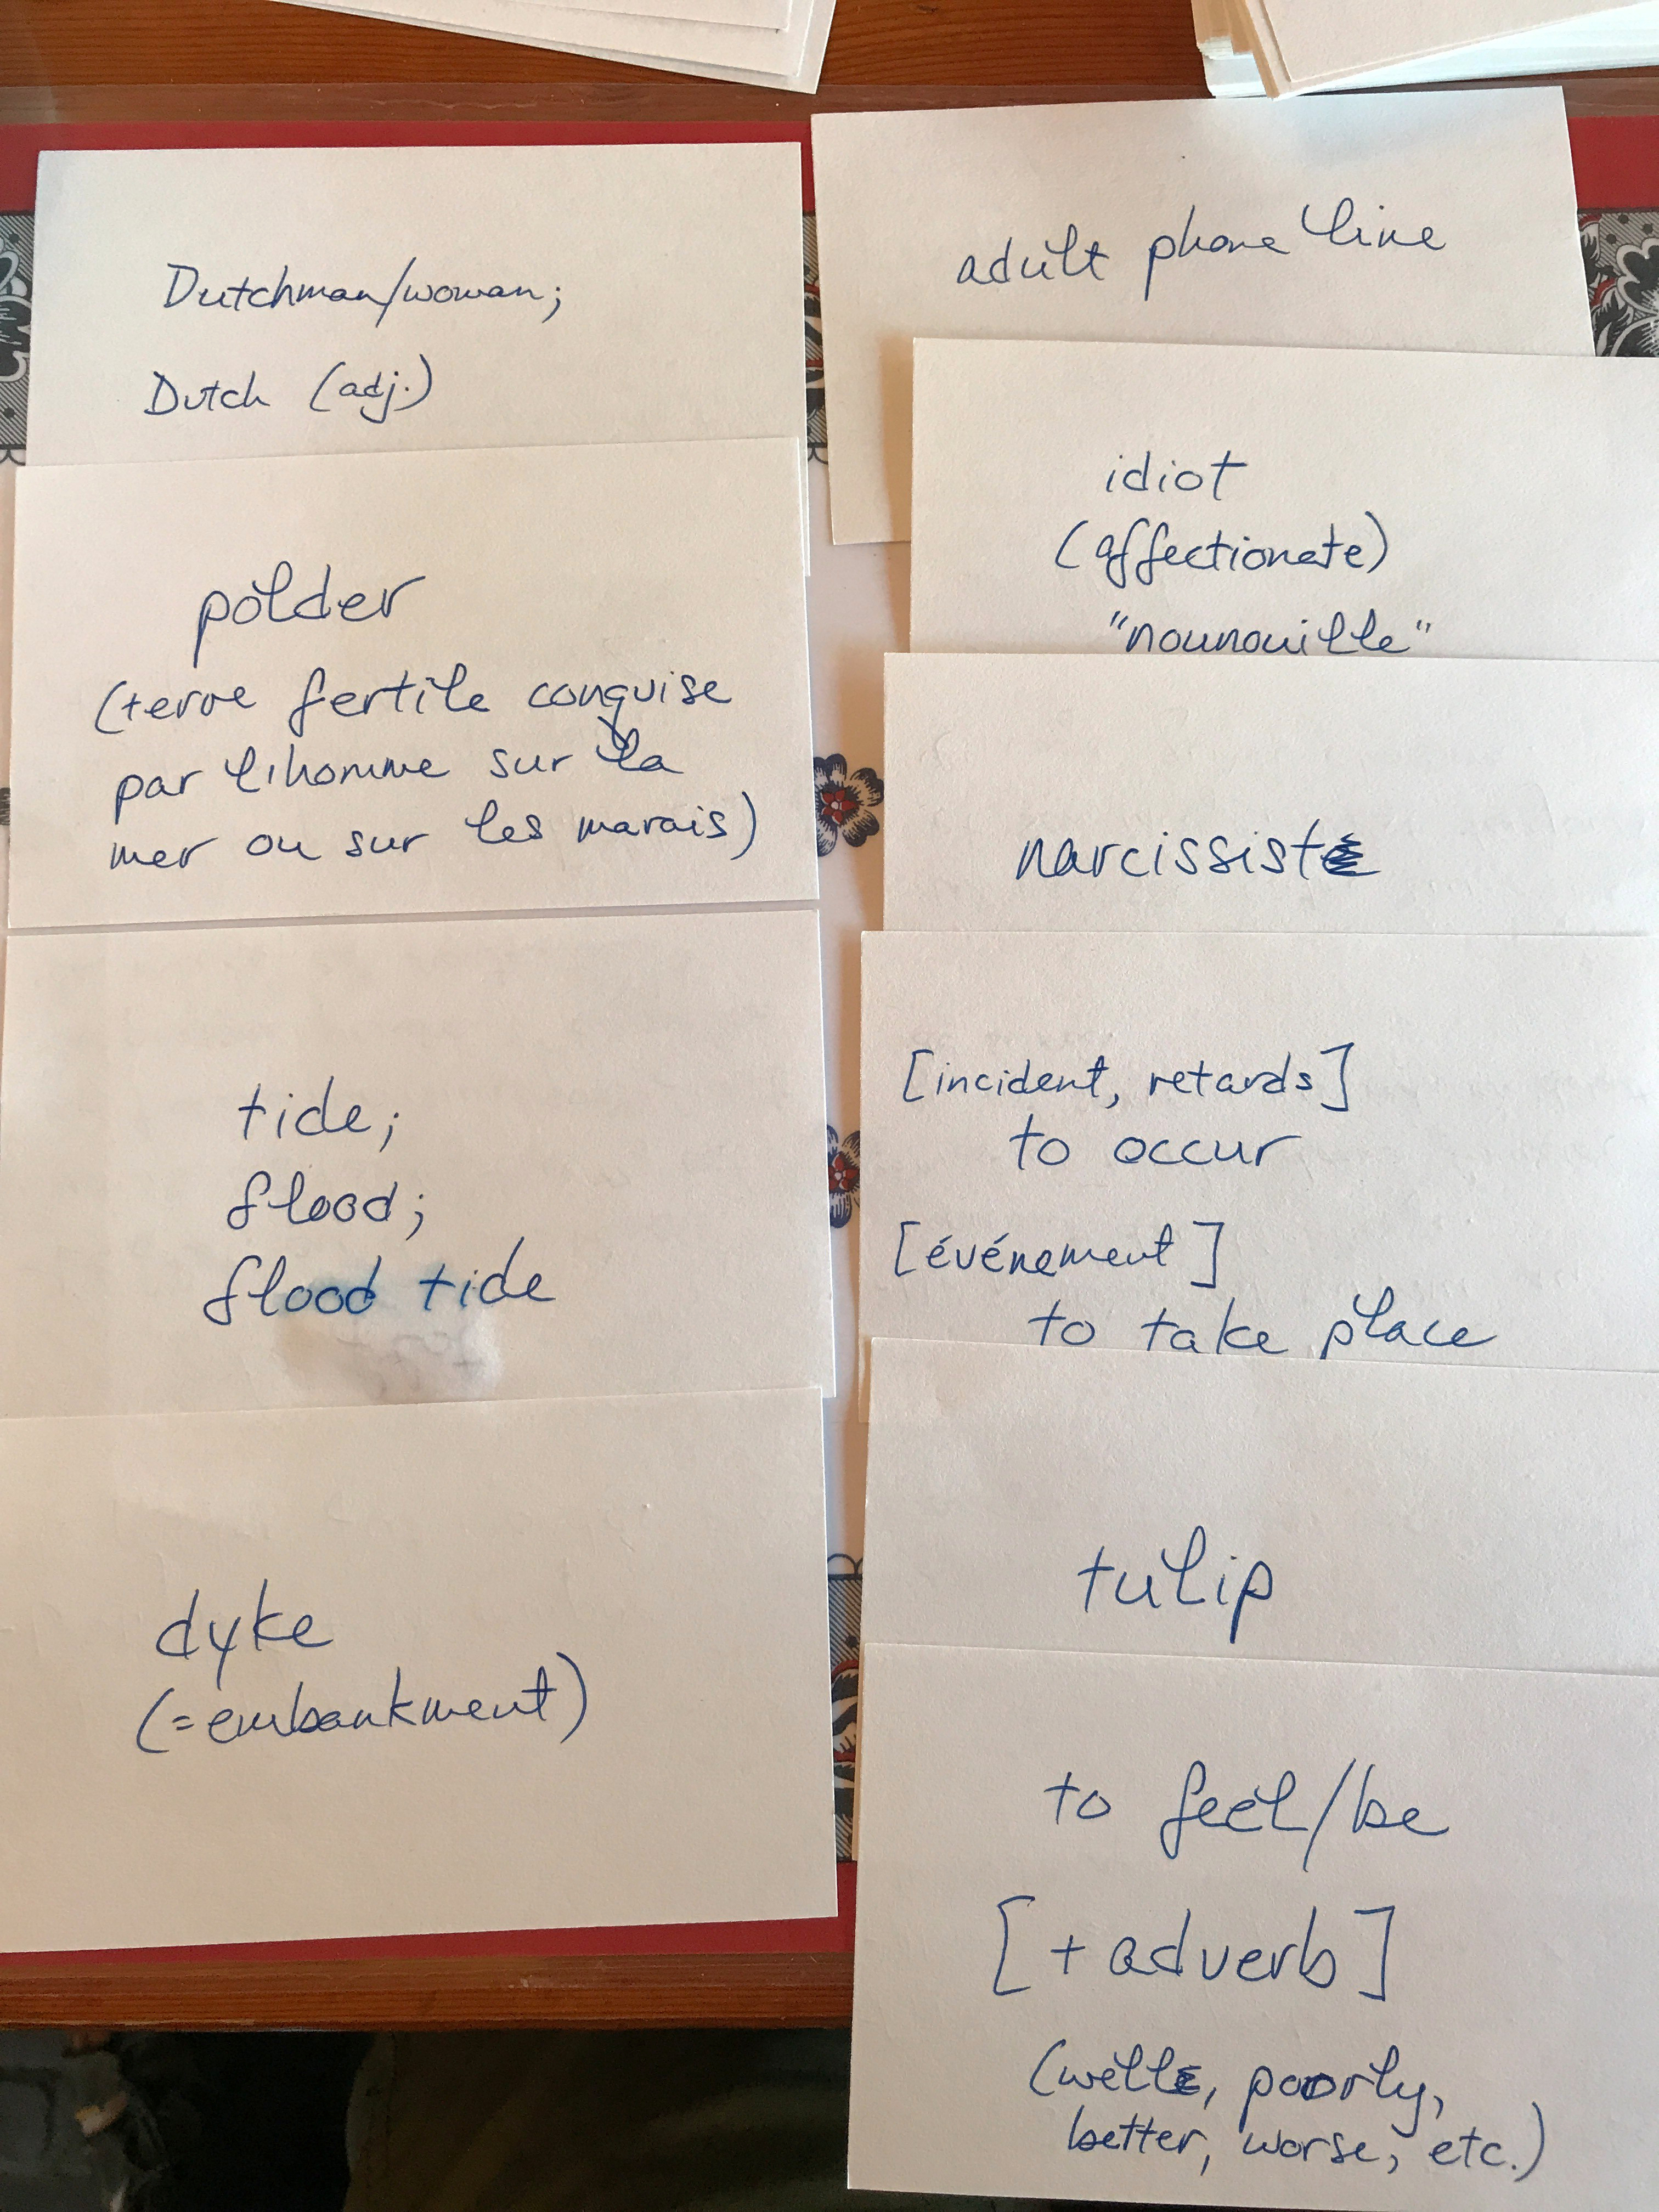 Dutchman/woman;
Dutch (adj.)
polder
(terre fertile conquise
par l'homme sur la
mer ou sur les marais)
tide;
flood;
flood tide
dyke
(=embankment)
adult phone line
idiot
(affectionate)
"nounouille"
narcissist
[incident, retards]
to occur
[événement]
to take place
tulip
to feel/be
[+ adverb]
(well, poorly,
better, worse, etc.)